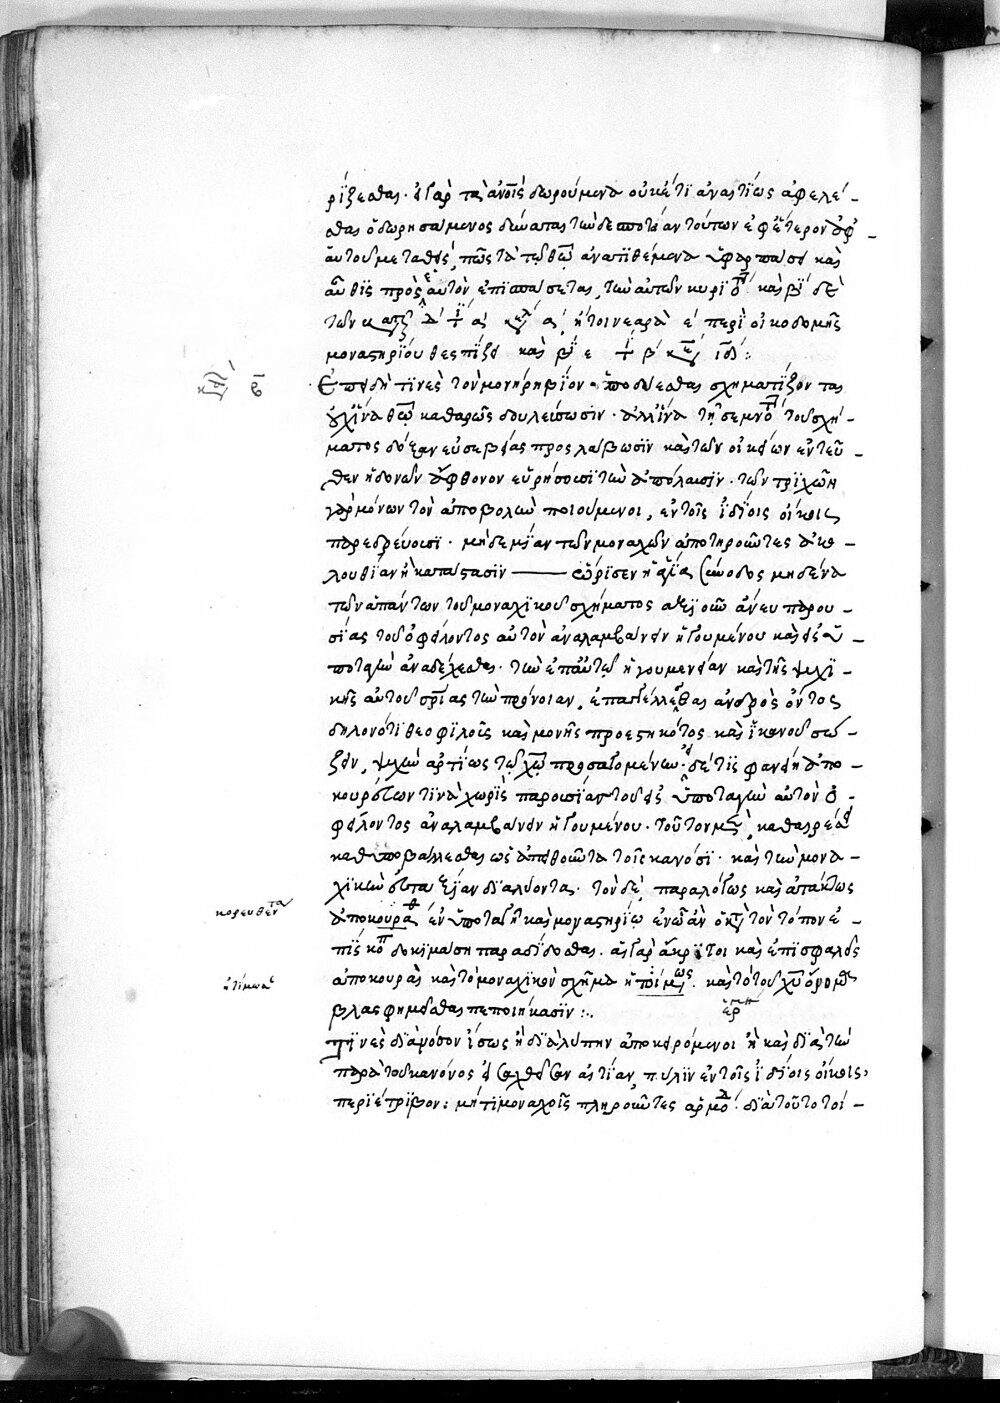 ρίζεσθαι. εἰ γὰρ τὰ ἀνοῖς δωρούμενα οὐκέτι ἀναιτίως ἀφελέ-
σθαι ὁ δωρησάμενος δύναται τὴν δεσποτείαν τούτων ἐφ' ἕτερον ἀφ'
αὐτοῦ μεταθείς, πῶς τὰ τῷ θῶ ἀνατιθέμενα ὑφαρπάσει καὶ
αὖθις πρὸς ἑαυτὸν ἐπισπάσεται τὴν αὐτῶν κυριό καὶ βι δὲ
τῶν α ἤτοι νεαρὰ ε περὶ οἰκοδομῆς
μοναστηρίου θεσπίζει καὶ βι ε β ιδ:
Ἐπειδή τινες τὸν μονήρη βίον ὑποδύεσθαι σχηματίζονται
οὐχ ἵνα θῶ καθαρῶς δουλεύσωσιν. ἀλλ' ἵνα τῇ σεμνό τοῦ σχή-
ματος δόξαν εὐσεβείας προσλάβωσιν καὶ τῶν οἰκείων ἐντεῦ-
θεν ἡδονῶν ἄφθονον εὑρήσουσι τὴν ἀπόλαυσιν. τῶν τριχῶν
γὰρ μόνων τὸν ἀποβολὴν ποιούμενοι, ἐν τοῖς ἰδίοις οἴκοις
παρεδρεύουσι. μηδεμίαν τῶν μοναχῶν ἀποπληροῦντες ἀκο-
λουθίαν ἢ κατάστασιν —— ὥρισεν ἡ ἁγία σύνοδος μηδένα
τῶν ἁπάντων τοῦ μοναχικοῦ σχήματος ἀξιοῦν ἄνευ παρου-
σίας τοῦ ὀφείλοντος αὐτὸν ἀναλαμβάνειν ἡγουμένου καὶ εἰς ὑ-
ποταγὴν ἀναδέχεσθαι. τὴν ἐπ' αὐτῷ ἡγουμενείαν καὶ τῆς ψυχι-
κῆς αὐτοῦ σρίας τὴν πρόνοιαν, ἐπαγγέλλεσθαι ἀνδρὸς ὄντος
δηλονότι θεοφιλοῦς καὶ μονῆς προεστηκότος καὶ ἱκανοῦ σώ-
ζειν, ψυχὴν ἀρτίως τῷ χῶ προσαγομένην. εἰ δέ τις φανείη ἀπο-
κουρεύων τινὰ χωρὶς παρουσίας τοῦ εἰς ὑποταγὴν αὐτὸν ὀ-
φείλοντος ἀναλαμβάνειν ἡγουμένου. τοῦτον μὲν καθαιρέσει
καθυποβάλλεσθαι ὡς ἀπειθοῦντα τοῖς κανόσι. καὶ τὴν μονα-
χικὴν εὐταξίαν διαλύοντα. τὸν δὲ παραλόγως καὶ ἀτάκτως
ἀποκουρα ἐν ὑποταγῇ καὶ μοναστηρίῳ ἐν ὧ ἂν ὁ τὸν τόπον ἐ-
πίσκο δοκιμάσῃ παραδίδοσθαι. αἱ γὰρ ἄκριτοι καὶ ἐπισφαλεῖς
ἀποκουραὶ καὶ τὸ μοναχικὸν σχῆμα ἠτίμως καὶ τὸ τοῦ χῦ ὄνομα
βλασφημεῖσθαι πεποιήκασιν:.
Τινὲς διὰ νόσον ἴσως ἢ διὰ λύπην ἀποκειρόμενοι ἢ καὶ διὰ τὴν
παρὰ τοῦ κανόνος ἐξελθοῦσαν αἰτίαν πάλιν ἐν τοῖς ἰδίοις οἴκοις
περιέτριβον: μήτι μοναχοῖς πληροῦντες ἁρμόδ διὰ τοῦτο τοί-
κορευθεντα
ἠτίμωσ